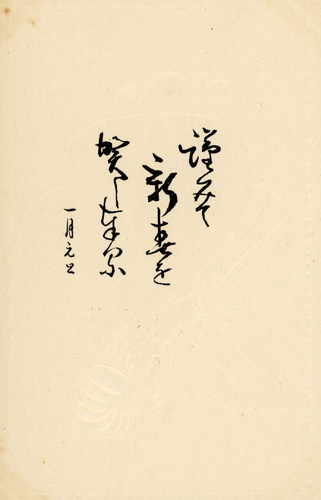 謹みて
新春を
賀し奉る
一月元旦